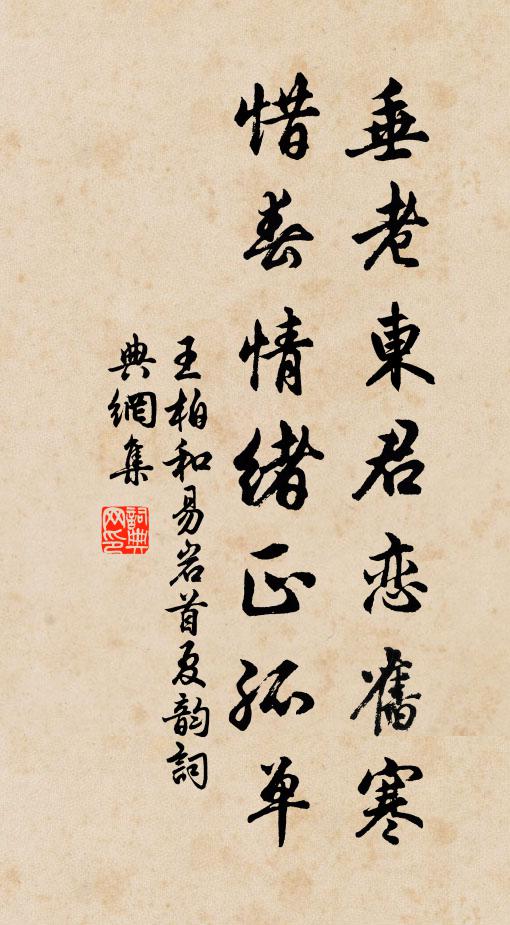 垂老東君恋舊寒
惜春情緒正孤单
王柏和易岩首夏韵詞
典網集
詞典網印